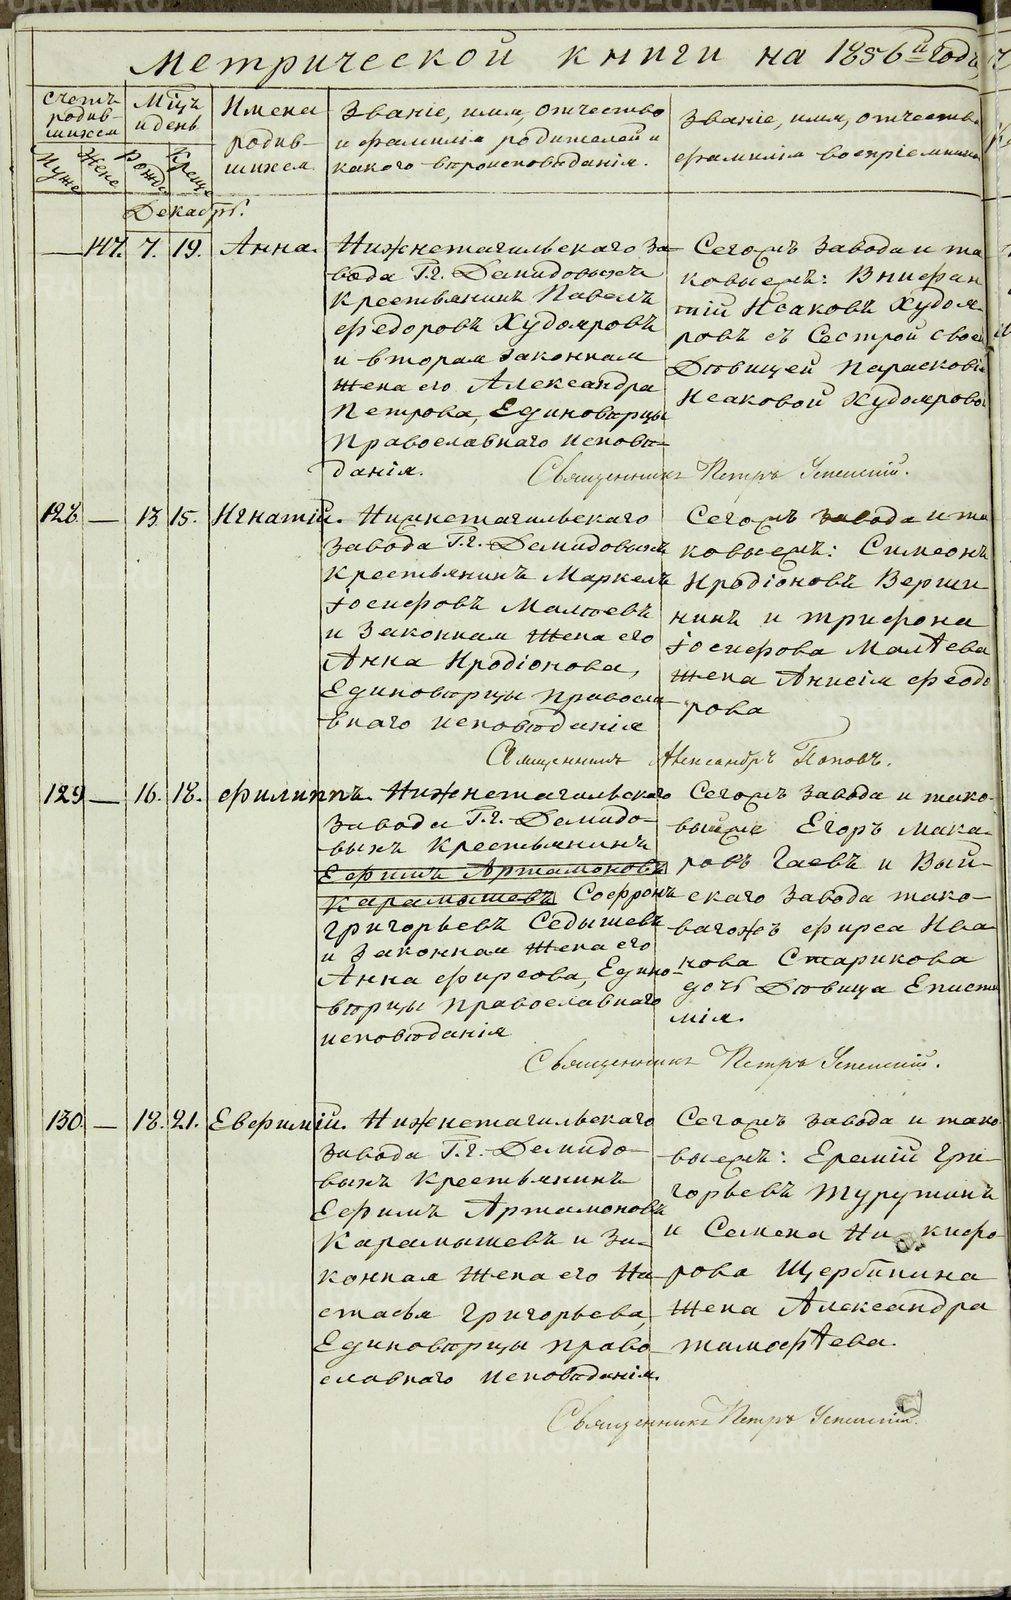 метрической книги на 1856й годъ
Счетъ родив-шихся
Мцъ и день
Имена родив-шихся
Званіе, имя, отчество и фамилія родителей и какого вѣроисповѣданія.
Званіе, имя, отчество фамилія воспріемников
Муже
Жене
Рожд
Креще
Декабрь.
— 147. 7. 19. Анна.
Нижнетагильскаго за-
вода Г.г. Демидовыхъ
крестьянинъ Павелъ
Федоровъ Худояровъ
и вторая законная
жена его Александра
Петрова, Единовѣрцы
Православнаго исповѣ-
данія.
Сегожъ завода и та
ковыежъ: Внифан
тій Исаковъ Худоя-
ровъ съ Сестрой своей
Дѣвицей Парасковіи
Исаковой Худоярово
Священникъ Петръ Успенскій.
128. — 13 15. Игнатій.
Нижнетагильскаго
завода Г.г. Демидовыхъ
крестьянинъ Маркелъ
Іосифовъ Малѣевъ
и Законная жена его
Анна Иродіонова,
Единовѣрцы правосла-
внаго исповѣданія
Сегожъ завода и та
ковыежъ: Симеонъ
Иродіоновъ Верши
нинъ и трифона
Іосифова Малѣева
жена Анисія феодо
рова
Священникъ Александръ Поповъ.
129 — 16. 18. Филиппъ.
Нижнетагильскаго
завода Г.г. Демидо-
выхъ Крестьянинъ
Ефимъ Артамоновъ
Карамышевъ Софронъ
григорьевъ Седышевъ
и Законная жена его
Анна фирсова, Едино-
вѣрцы православнаго
исповѣданія
Сегожъ завода и тако-
выежъ Егоръ Мака-
ровъ Гаевъ и Вый-
скаго завода тако-
вагожъ фирса Ива
нова Старикова
дочь Дѣвица Еписти
мія.
Священникъ Петръ Успенскій.
130. — 18. 21. Евфимій.
Нижнетагильскаго
завода Г.г. Демидо-
выхъ Крестьянинъ
Ефимъ Артамоновъ
Карамышевъ и За-
конная жена его На-
стасья григорьева,
Единовѣрцы право-
славнаго исповѣданія.
Сегожъ завода и тако
выежъ: Еремій гри-
горьевъ Турутинъ
и Семена Никифо-
рова Щербинина
жена Александра
тимофѣева.
Священникъ Петръ Успенскій.
METRIKI.GASO-URAL.RU